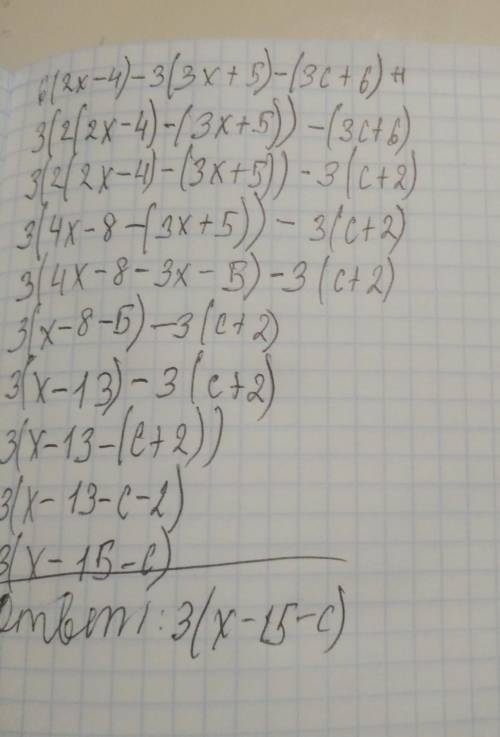 6(2x-4)-3(3x+5)-(3c+6)
3(2(2x-4)-(3x+5))-(3c+6)
3(2(2x-4)-(3x+5))-3(c+2)
3(4x-8-(3x+5))-3(c+2)
3(4x-8-3x-5)-3(c+2)
3(x-8-5)-3(c+2)
3(x-13)-3(c+2)
3(x-13-(c+2))
3(x-13-c-2)
3(x-15-c)
Ответ: 3(x-15-c)